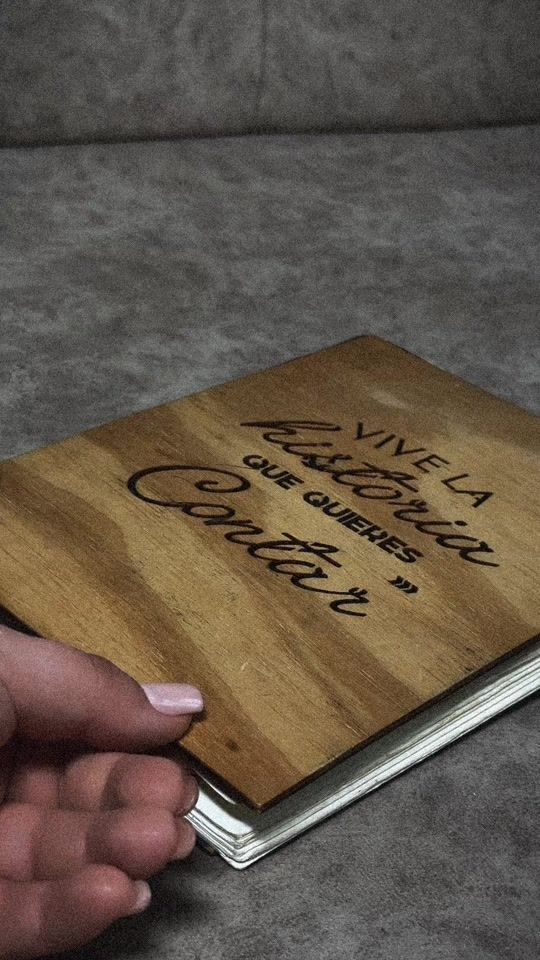 VIVE LA
historia
QUE QUIERES
Contar
»»